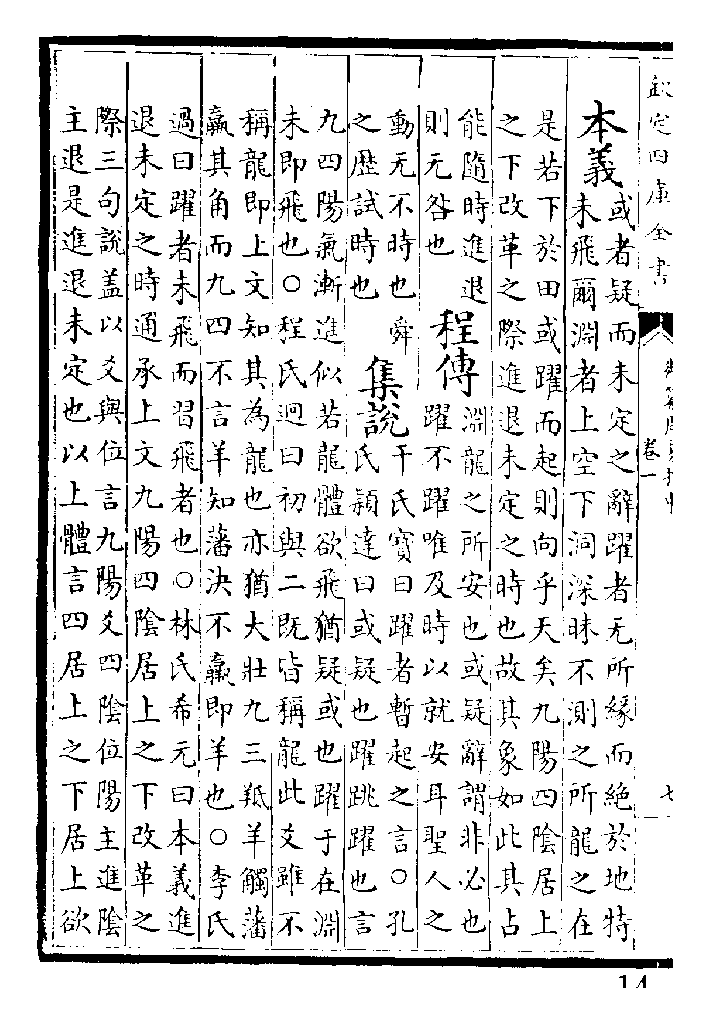 欽定四庫全書
卷一
七
本義
或者疑而未定之辭躍者无所緣而絶於地特
未飛爾淵者上空下洞深昧不測之所龍之在
是若下於田或躍而起則向乎天矣九陽四陰居上
之下改革之際進退未定之時也故其象如此其占
能隨時進退
則无咎也
程傳
淵龍之所安也或疑辭謂非必也
躍不躍唯及時以就安耳聖人之
動无不時也舜
之歴試時也
集說
干氏寶曰躍者暫起之言○孔
氏穎達曰或疑也躍跳躍也言
九四陽氣漸進似若龍體欲飛猶疑或也躍于在淵
未即飛也○程氏迥曰初與二既皆稱龍此爻雖不
稱龍即上文知其為龍也亦猶大壯九三羝羊觸藩
羸其角而九四不言羊知藩決不羸即羊也○李氏
過曰躍者未飛而習飛者也○林氏希元曰本義進
退未定之時通承上文九陽四陰居上之下改革之
際三句說盖以爻與位言九陽爻四陰位陽主進陰
主退是進退未定也以上體言四居上之下居上欲
14